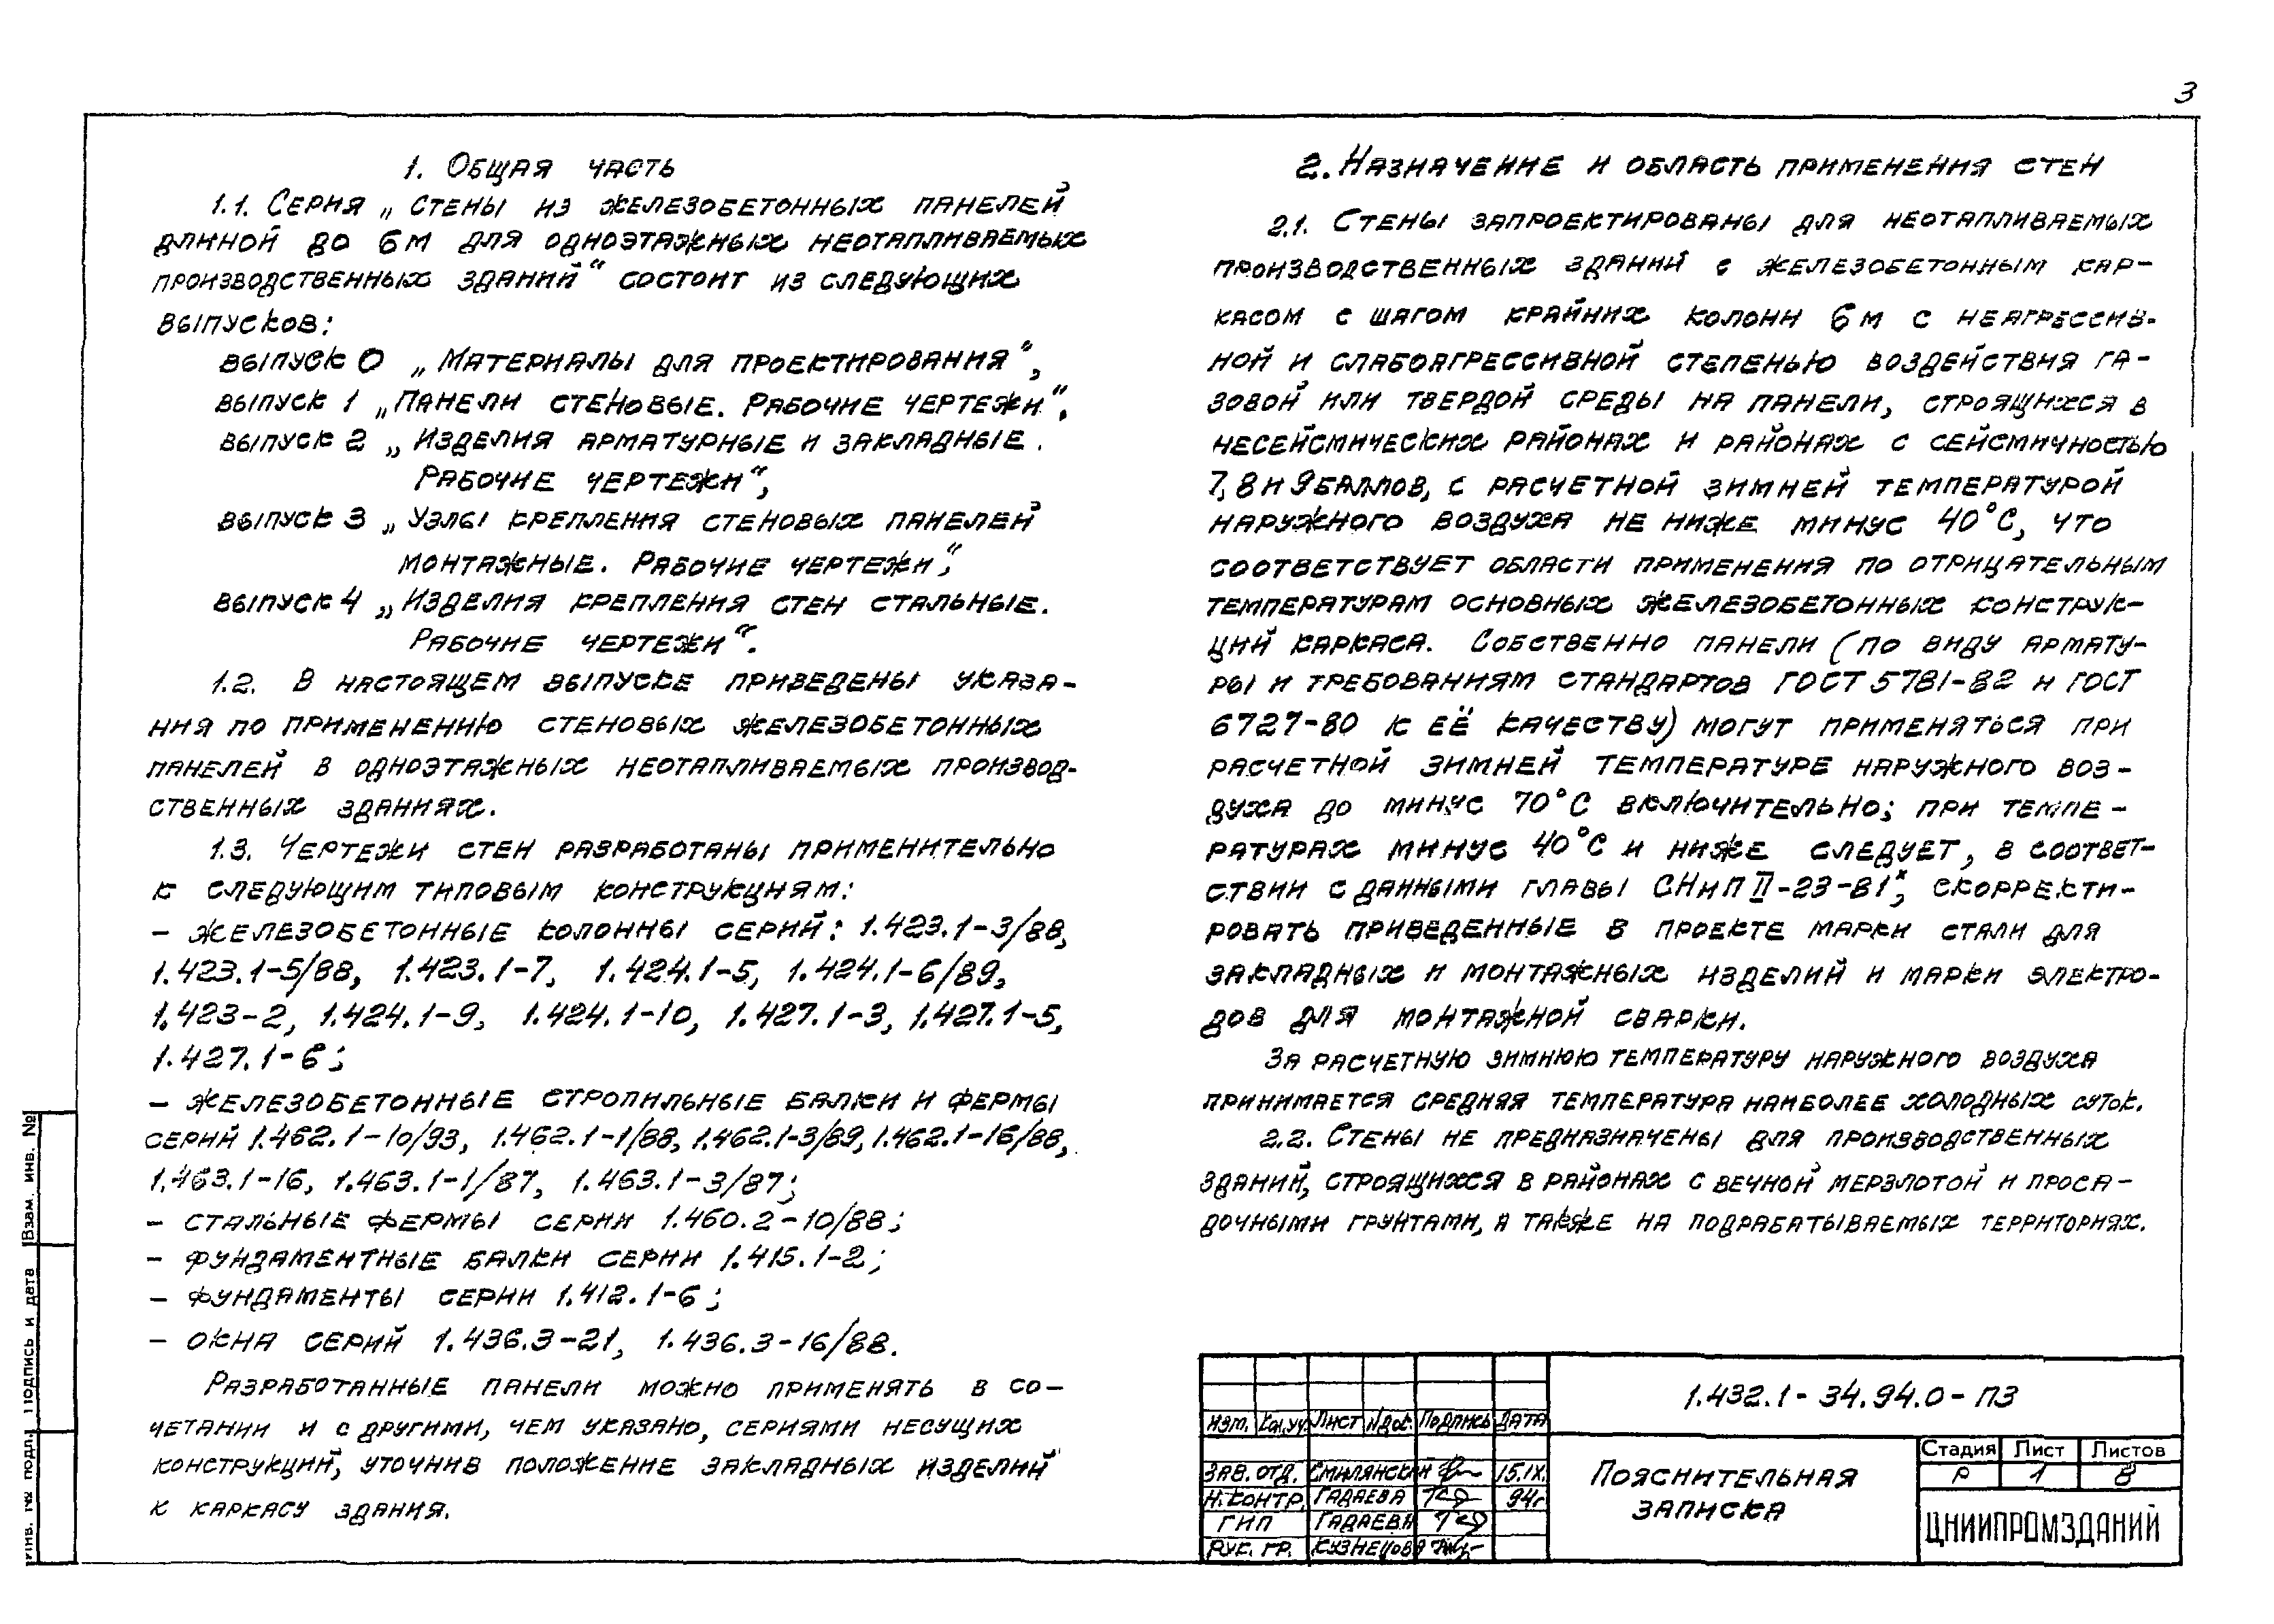 3
1. Общая часть
1.1. Серия „Стены из железобетонных панелей
длиной до 6 м для одноэтажных неотапливаемых
производственных зданий“ состоит из следующих
выпусков:
выпуск 0 „Материалы для проектирования“,
выпуск 1 „Панели стеновые. Рабочие чертежи“,
выпуск 2 „Изделия арматурные и закладные.
Рабочие чертежи“,
выпуск 3 „Узлы крепления стеновых панелей
монтажные. Рабочие чертежи“,
выпуск 4 „Изделия крепления стен стальные.
Рабочие чертежи“.
1.2. В настоящем выпуске приведены указа-
ния по применению стеновых железобетонных
панелей в одноэтажных неотапливаемых производ-
ственных зданиях.
1.3. Чертежи стен разработаны применительно
к следующим типовым конструкциям:
– железобетонные колонны серий: 1.423.1-3/88,
1.423.1-5/88, 1.423.1-7, 1.424.1-5, 1.424.1-6/89,
1.423-2, 1.424.1-9, 1.424.1-10, 1.427.1-3, 1.427.1-5,
1.427.1-6;
– железобетонные стропильные балки и фермы
серий 1.462.1-10/93, 1.462.1-1/88, 1.462.1-3/89, 1.462.1-16/88,
1.463.1-16, 1.463.1-1/87, 1.463.1-3/87;
– стальные фермы серии 1.460.2-10/88;
– фундаментные балки серии 1.415.1-2;
– фундаменты серии 1.412.1-6;
– окна серий 1.436.3-21, 1.436.3-16/88.
Разработанные панели можно применять в со-
четании и с другими, чем указано, сериями несущих
конструкций, уточнив положение закладных изделий
к каркасу здания.
2. Назначение и область применения стен
2.1. Стены запроектированы для неотапливаемых
производственных зданий с железобетонным кар-
касом с шагом крайних колонн 6 м с неагрессив-
ной и слабоагрессивной степенью воздействия га-
зовой или твердой среды на панели, строящихся в
несейсмических районах и районах с сейсмичностью
7, 8 и 9 баллов, с расчетной зимней температурой
наружного воздуха не ниже минус 40°С, что
соответствует области применения по отрицательным
температурам основных железобетонных конструк-
ций каркаса. Собственно панели (по виду армату-
ры и требованиям стандартов ГОСТ 5781-82 и ГОСТ
6727-80 к её качеству) могут применяться при
расчетной зимней температуре наружного воз-
духа до минус 70°С включительно; при темпе-
ратурах минус 40°С и ниже следует, в соответ-
ствии с данными главы СНиП II-23-81*, скорректи-
ровать приведенные в проекте марки стали для
закладных и монтажных изделий и марки электро-
дов для монтажной сварки.
За расчетную зимнюю температуру наружного воздуха
принимается средняя температура наиболее холодных суток.
2.2. Стены не предназначены для производственных
зданий, строящихся в районах с вечной мерзлотой и проса-
дочными грунтами, а также на подрабатываемых территориях.
1.432.1-34.94.0-ПЗ
Изм. Кол.уч. Лист №док. Подпись Дата
Зав. отд. Смилянский 15.IX.
Н. контр. Гадаева 94г
ГИП Гадаева
Рук. гр. Кузнецова
Пояснительная
записка
Стадия Лист Листов
Р 1 8
ЦНИИПРОМЗДАНИЙ
Взам. инв. №
Подпись и дата
Инв. № подл.